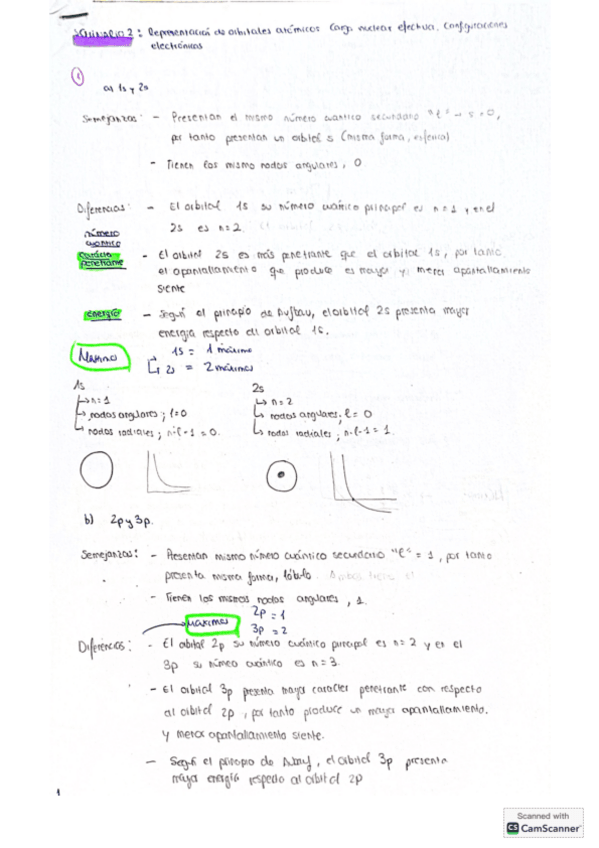 Seminario 2: Representación de orbitales atómicos. Carga nuclear efectiva. Configuraciones
electrónicas
1
a) 1s y 2s
Semejanzas: - Presentan el mismo número cuántico secundario "l" → s = 0,
por tanto presentan un orbital s (misma forma, esférica)
- Tienen los mismo nodos angulares, 0
Diferencias: - El orbital 1s su número cuántico principal es n = 1 y en el
2s es n = 2.
número
cuántico
carácter
penetrante
- El orbital 2s es más penetrante que el orbital 1s, por tanto
el apantallamiento que produce es mayor y menor apantallamiento
siente
energía
- Según el principio de Aufbau, el orbital 2s presenta mayor
energía respecto al orbital 1s.
Máximos
1s = 1 máximo
↳ 2s = 2 máximos
1s
↳ n = 1
↳ nodos angulares; l = 0
↳ nodos radiales; n-l-1 = 0.
2s
↳ n = 2
↳ nodos angulares, l = 0
↳ nodos radiales; n-l-1 = 1.
b) 2p y 3p.
Semejanzas: - Presentan mismo número cuántico secundario "l" = 1, por tanto
presenta misma forma, lóbulo
- Tienen los mismos nodos angulares, 1.
máximos
2p = 1
3p = 2
Diferencias: - El orbital 2p su número cuántico principal es n = 2 y en el
3p su número cuántico es n = 3.
- El orbital 3p presenta mayor carácter penetrante con respecto
al orbital 2p, por tanto produce un mayor apantallamiento.
y menor apantallamiento siente.
- Según el principio de, el orbital 3p presenta
mayor energía respecto al orbital 2p
1
Scanned with
CS CamScanner